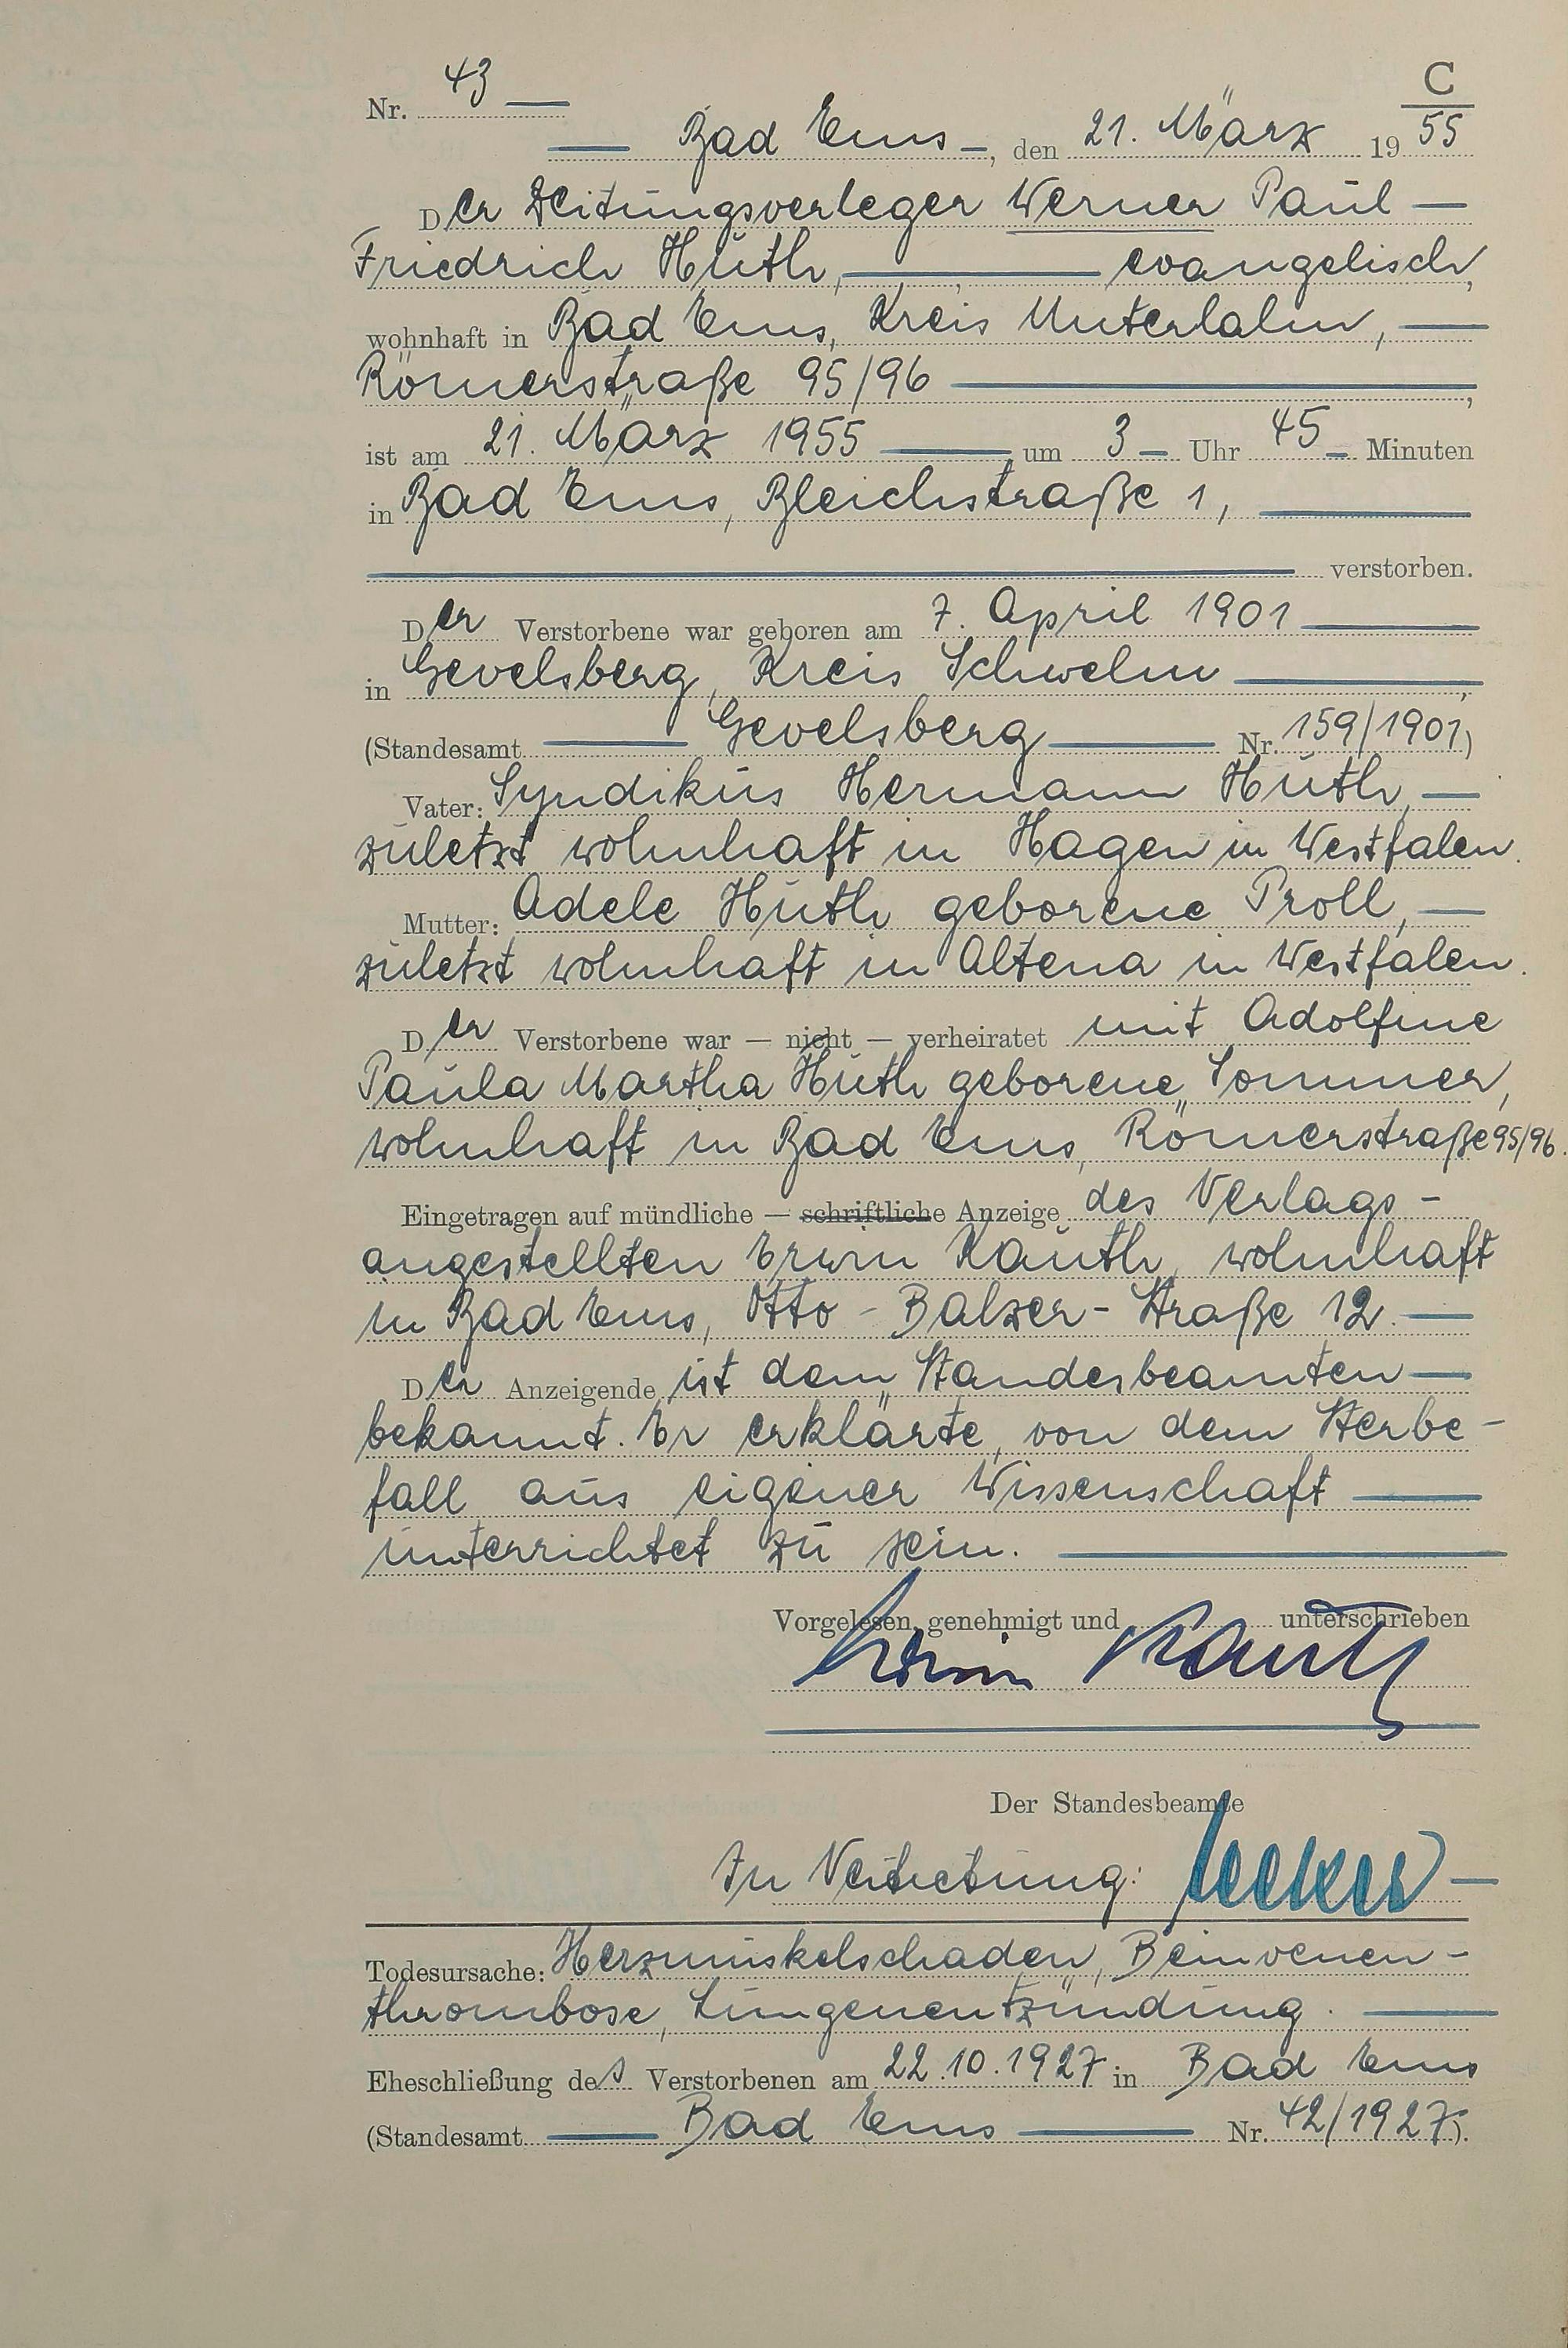 C
Nr. 43 —
— Bad Ems —, den 21. März 1955
Der Zeitungsverleger Werner Paul —
Friedrich Huth, — evangelisch,
wohnhaft in Bad Ems, Kreis Unterlahn, —
Römerstraße 95/96 —,
ist am 21. März 1955 — um 3 — Uhr 45 — Minuten
in Bad Ems, Bleichstraße 1, —
— verstorben.
Der Verstorbene war geboren am 7. April 1901 —
in Gevelsberg, Kreis Schwelm —,
(Standesamt — Gevelsberg — Nr. 159/1901)
Vater: Syndikus Hermann Huth, —
zuletzt wohnhaft in Hagen in Westfalen.
Mutter: Adele Huth geborene Proll, —
zuletzt wohnhaft in Altena in Westfalen.
Der Verstorbene war — nicht — verheiratet mit Adolfine
Paula Martha Huth geborene Sommer,
wohnhaft in Bad Ems, Römerstraße 95/96.
Eingetragen auf mündliche — schriftliche Anzeige des Verlags-
angestellten Erwin Kauth, wohnhaft
in Bad Ems, Otto-Balzer-Straße 12. —
Der Anzeigende ist dem Standesbeamten —
bekannt. Er erklärte, von dem Sterbe-
fall aus eigener Wissenschaft —
unterrichtet zu sein. —
Vorgelesen, genehmigt und unterschrieben
Erwin Kauth
Der Standesbeamte
In Vertretung:
Todesursache: Herzmuskelschaden, Beinvenen-
thrombose, Lungenentzündung. —
Eheschließung des Verstorbenen am 22.10.1927 in Bad Ems
(Standesamt — Bad Ems — Nr. 42/1927).